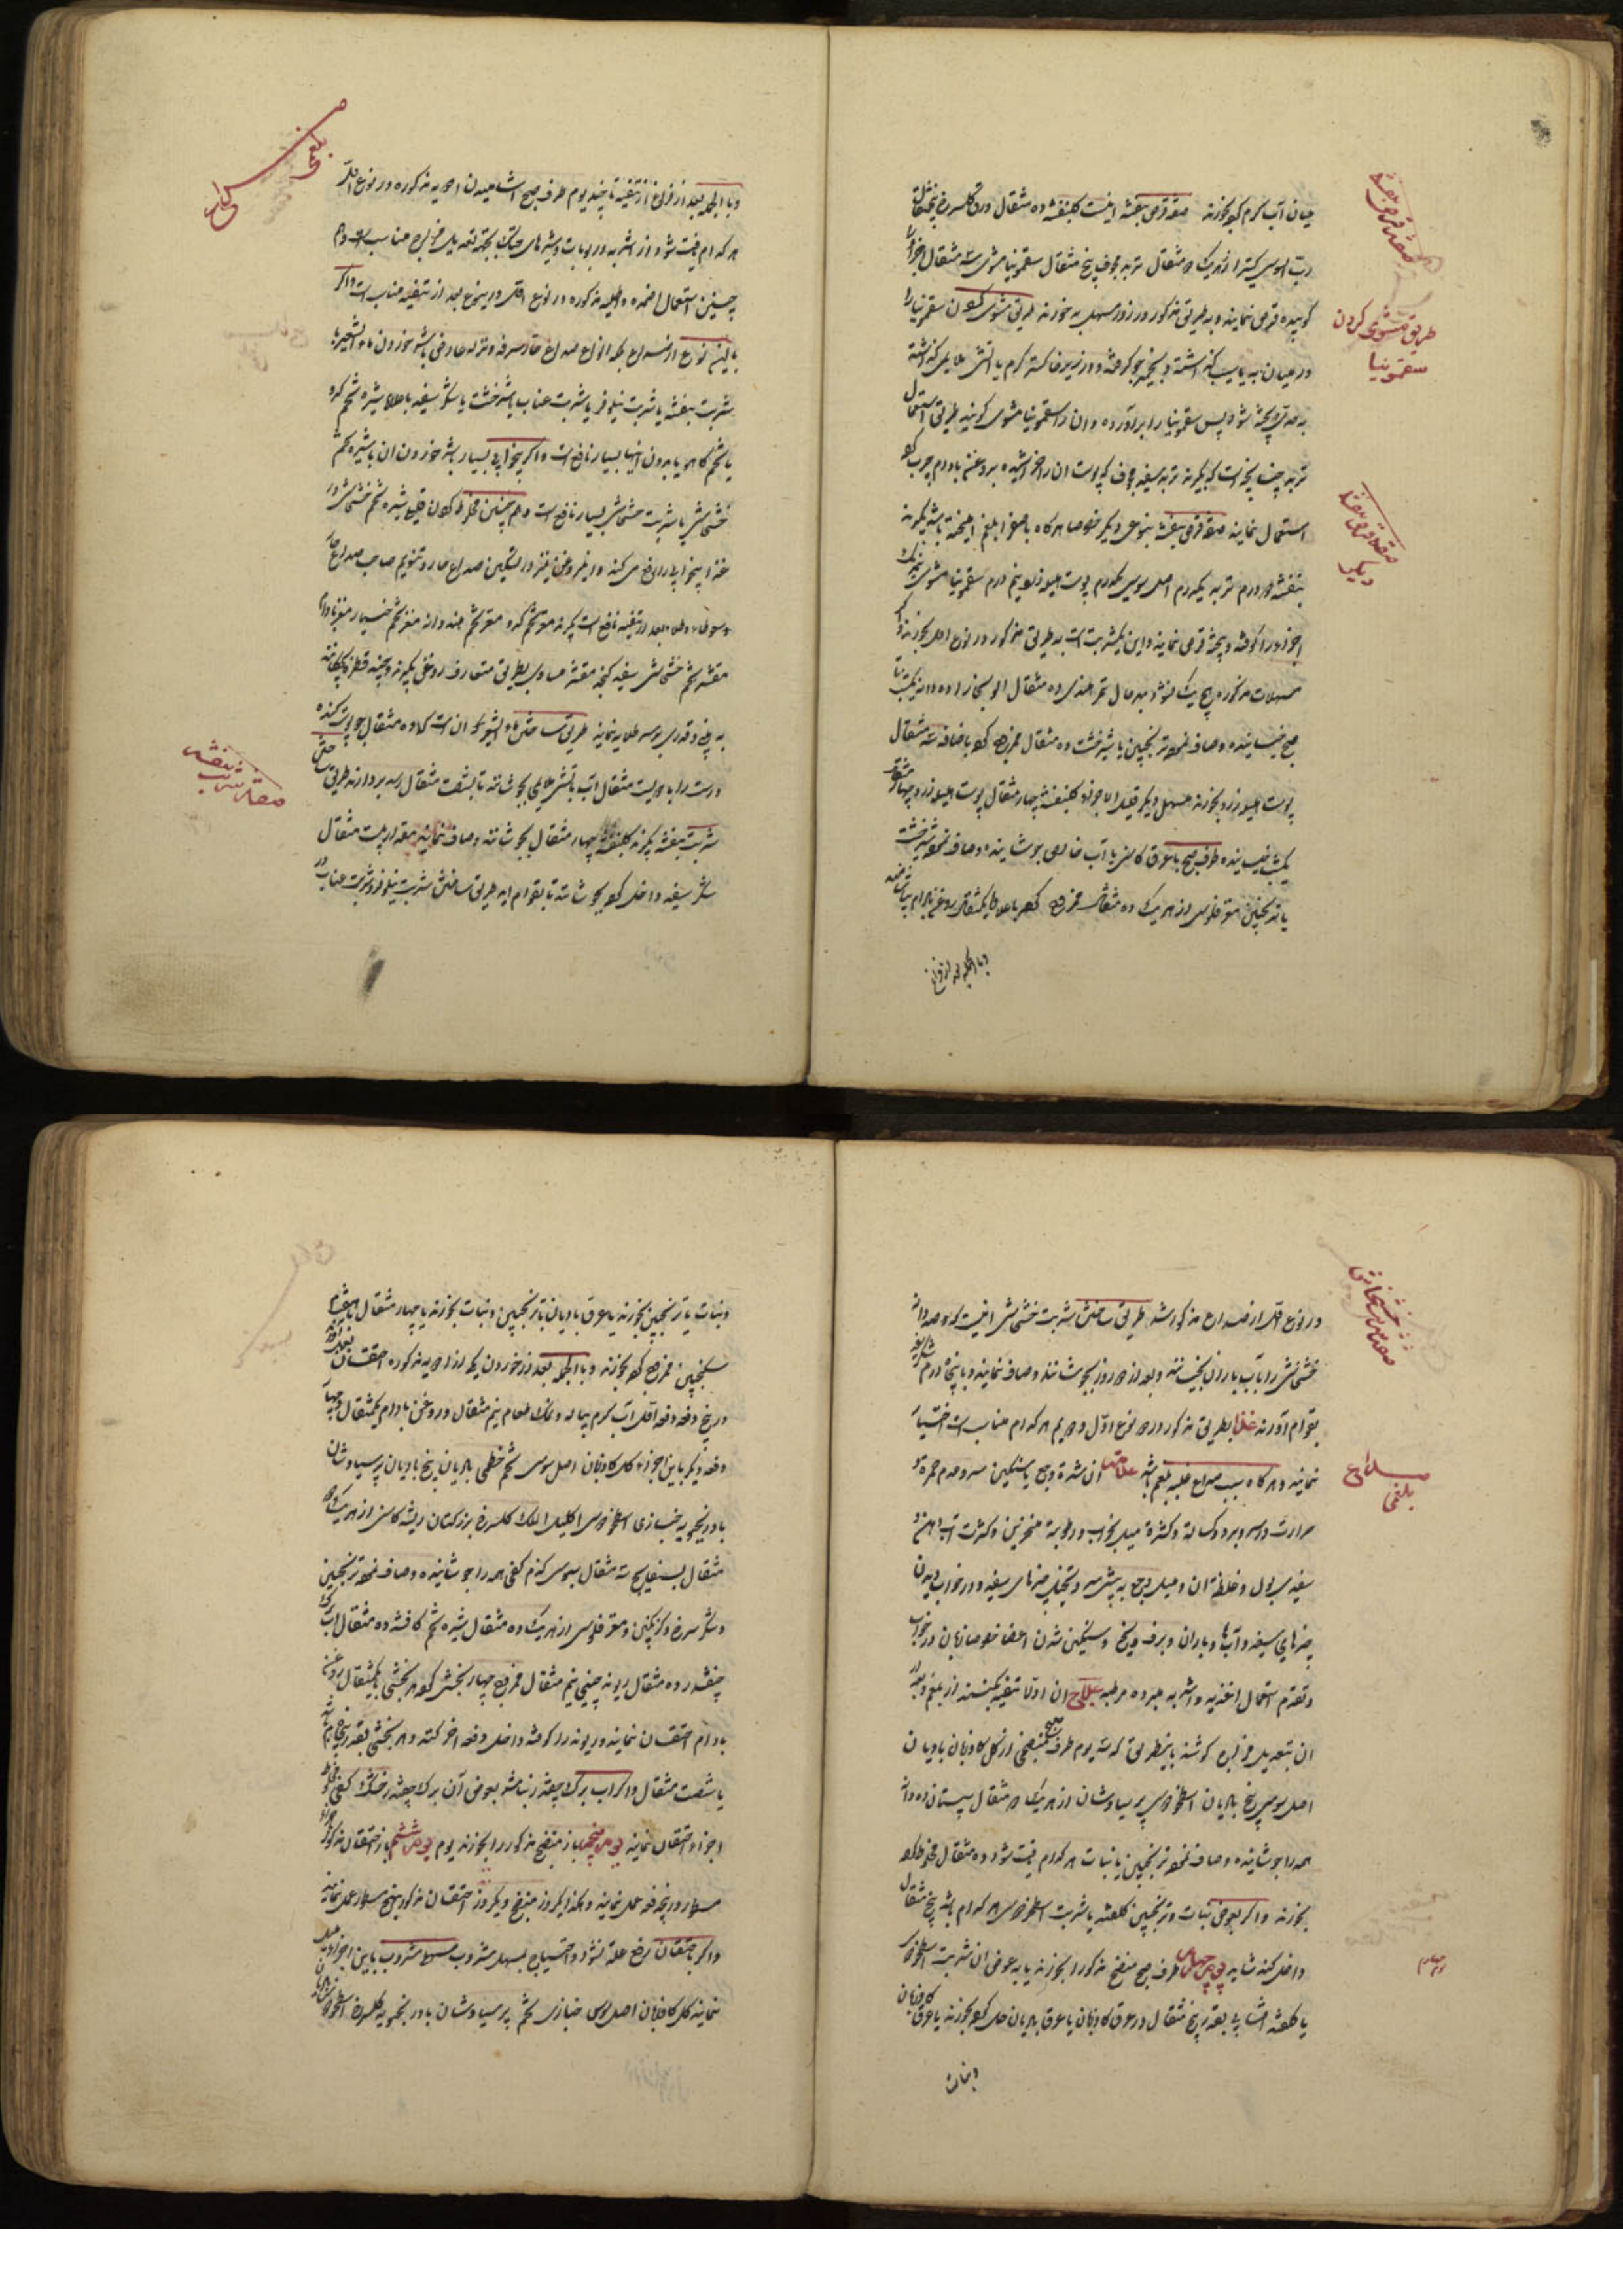 میان آب گرم کو بخورند صفة قرص بنفشه اینست گلبنفشه ده مثقال ورق گلسرخ پنجمثقال
رب السوس کتیرا از هریک دو مثقال تربد مجوف پنج مثقال سقمونیا مشوی سه مثقال اجزا را
کوبیده قرص نمایند و بطریق مذکور در روز مسهل بخورند طریق مشوی کردن سقمونیا را
در میان به یا سیب گذاشته و بخمیر جو گرفته و در زیر خاکستر گرم یا آتش ملایمی گذاشته
پخته شود پس سقمونیا را برآورده و آن را سقمونیا مشوی گویند طریق استعمال
تربد چنانچه است که بگیرند تربد سفید مجوف که پوست آن را خراشیده بروغن بادام چرب
استعمال نمایند صفة قرص بنفشه بنوعی دیگر خصوصا هرگاه با صفرا بلغم آمیخته باشد بگیرند
بنفشه دو درم تربد یکدرم اصل سوس یکدرم پوست هلیله زرد نیم درم سقمونیا مشوی
اجزا را کوفته و پخته قرص نمایند و این یکشربت است به طریق مذکور در نوع اول بخورند و اگر
مسهلات مذکوره هیچ یک نشود بهر حال تمر هندی ده مثقال آلو بخارا ده دانه یکشب تا
صبح خیسانیده و صاف نموده ترنجبین یا شیرخشت ده مثقال ممزوج کرده باضافه سه مثقال
پوست هلیله زرد بخورند مسهل دیگر قلیل الاجزاء گلبنفشه چهار مثقال پوست هلیله زرد چهار مثقال
یکشب خیسانیده طرف صبح با عرق کاسنی یا آب خالص جوشانیده و صاف نموده شیرخشت
یا ترنجبین مغز فلوس از هریک ده مثقال ممزوج کرده با علاوه یکمثقال روغن بادام بیاشامند
و بالجمله بعد از فراغ
صفة قرص بنفشه
طریق مشوی کردن
سقمونیا
صفة قرص بنفشه
دیگر
و بالجمله بعد از فراغ از تنقیه تا چند یوم طرف صبح آشامیدن ادویه مذکوره در نوع اول
هر کدام یافت شود از اشربه و ربوبات و شیرهای خنک بجهة تعدیل مزاج مناسب است و هم
چنین استعمال اضمده و اطلیه مذکوره در نوع اول درین نوع بعد از تنقیه مناسب است و اگر
با این نوع از صداع بلکه انواع صداع حار سرفه و نزله عارض باشد خوردن ماء الشعیر با
شربت بنفشه یا شربت نیلوفر یا شربت عناب یا شیرخشت یا شکر سفید با علاوه شیره تخم کدو
یا تخم کاهو یا بدون اینها بسیار نافع است و اگر بیخوابی بسیار باشد خوردن آن با شیره تخم
خشخاش یا شربت خشخاش بسیار نافع است و هم چنین مخلوط کردن قلیلی شیره تخم خشخاش در
غذا بیخوابی را دفع می کند و این روغن نیز در تسکین صداع حار و تنویم صاحب صداع حار
و سعوط و طلاء بعد از تنقیه نافع است بگیرند مغز تخم کدو مغز تخم هندوانه مغز تخم خیار مغز بادام
مقشر تخم خشخاش سفید کنجد مقشر مساوی بطریق متعارف روغن بگیرند و چند قطره چکانند
به بینی و قدری بر سر طلا نمایند طریق ساختن ماء الشعیر آن است که ده مثقال جو پوست کنده
درست را با دویست مثقال آب باتش ملایمی بجوشانند تا بشصت مثقال رسد بردارند طریق ساختن
شربت بنفشه بگیرند گلبنفشه چهار مثقال بجوشانند و صاف نمایند مقدار بیست مثقال
شکر سفید داخل کرده بجوشانند تا بقوام آید طریق ساختن شربت نیلوفر و شربت عناب
صفة شربت بنفشه
در نوع اول از صداع مذکور شد طریق ساختن شربت خشخاش اینست که دو صد دانه
خشخاش را بآب باران بخیسانند و بعد از دو روز بجوشانند و صاف نمایند و با پنجاه درم شکر سفید
بقوام آورند غذا بطریق مذکور در دو نوع اول و دویم هر کدام مناسب است اختیار
نمایند و هرگاه سبب صداع غلبه بلغم باشد علامت آن شدة وجع یا سنگینی سر و عدم حمره و
حرارت در سر و برد و کسالة و کثرة میل بخواب و رطوبة منخرین و کثرت آب دهن و
سفیدی بول و غلظة آن و میل وجع به پیش سر و تخیل چیزهای سفید و در خواب دیدن
چیزهای سفید و آبها و باران و برف و یخ و سنگین شدن اعضا خصوصا زبان در خواب
و تقدم استعمال اغذیه و اشربه مبرده مرطبه علاج آن اولا تنقیه بکنند از بلغم و بعد
آن بتعدیل مزاج کوشند باینطریق که سه یوم طرف صبح منضجی از گل گاوزبان بادیان
اصل سوس بیخ بادیان اسطوخودوس پرسیاوشان از هریک دو مثقال سپستان ده دانه
همه را جوشانیده و صاف نموده ترنجبین یا نبات هر کدام یافت شود ده مثقال مخلوط کرده
بخورند و اگر بعوض نبات و ترنجبین گلقند یا شربت اسطوخودوس هر کدام باشد پنج مثقال
داخل کنند شاید یوم چهارم طرف صبح منضج مذکور را بخورند یا به عوض آن شربت اسطوخودوس
یا گلقند آفتابی بقدر پنج مثقال در عرق گاوزبان یا عرق بادیان حل کرده بخورند یا عرق گاوزبان
و نبات
صفة شربت خشخاش
صداع
بلغمی
و نبات یا ترنجبین بخورند یا عرق بادیان با ترنجبین و نبات بخورند یا چهار مثقال
سکنجبین ممزوج کرده بخورند و بالجمله بعد از خوردن یکی از ادویه مذکوره احتقان
در پنج دفعه دفعه اول آب گرم پیاله و نمک طعام نیم مثقال و روغن بادام یکمثقال و چهار
دفعه دیگر باین اجزاء گل گاوزبان اصل سوس تخم خطمی بادیان بیخ بادیان پرسیاوشان
بادرنجبویه خبازی اسطوخودوس اکلیل الملک گلسرخ بزر کتان ریشه کاسنی از هریک دو
مثقال بسفایج سه مثقال سبوس گندم کفی همه را جوشانیده و صاف نموده ترنجبین
و شکر سرخ و گزنگبین و مغز فلوس از هریک ده مثقال شیره تخم کافشه ده مثقال آب
چغندر ده مثقال ریوند چینی نیم مثقال ممزوج چهار بخش کرده هر بخشی با یکمثقال روغن
بادام احتقان نمایند و ریوند را کوفته داخل دفعه آخر کنند و هر بخشی بقدر پنجاه
یا شصت مثقال و اگر آب برگ چغندر نباشد بعوض آن برگ چغندر خشک کفی مخلوط
اجزاء احتقان نمایند یوم پنجم باز منضج مذکور را بخورند یوم ششم باز احتقان مذکور
در پنج دفعه عمل نمایند و هکذا یکروز منضج و یکروز احتقان مذکور عمل نمایند
و اگر باحتقان دفع علة نشود و احتیاج بمسهل مشروب مسهل مشروب باین اجزاء میل
نمایند گل گاوزبان اصل سوس خبازی تخم پرسیاوشان بادرنجبویه گلسرخ اسطوخودوس